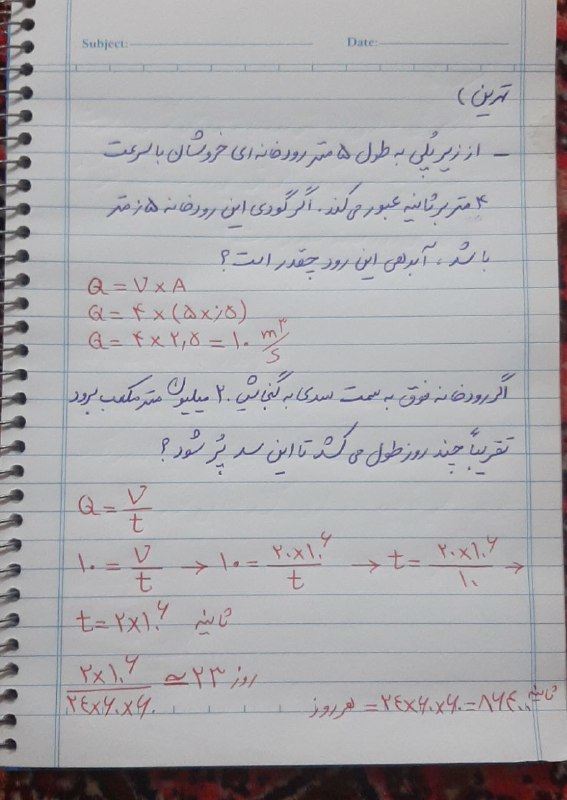 Subject: Date:
تمرین)
- از زیر پلی به طول ۵ متر رودخانه ای خروشان با سرعت
۴ متر بر ثانیه عبور می کند. اگر گودی این رودخانه ۰٫۵ متر
باشد، آبدهی این رود چقدر است؟
Q = V × A
Q = ۴ × (۵ × ۰٫۵)
Q = ۴ × ۲٫۵ = ۱۰ m³/s
اگر رودخانه فوق به سمت سدی به گنجایش ۲۰ میلیون متر مکعب برود
تقریباً چند روز طول می کشد تا این سد پُر شود؟
Q = V/t
۱۰ = V/t → ۱۰ = ۲۰×۱۰⁶/t → t = ۲۰×۱۰⁶/۱۰ →
t = ۲×۱۰⁶ ثانیه
۲×۱۰⁶/۲٤×۶۰×۶۰ ≃ ۲۳ روز
هر روز = ۲٤×۶۰×۶۰ = ۸۶٤۰۰ ثانیه